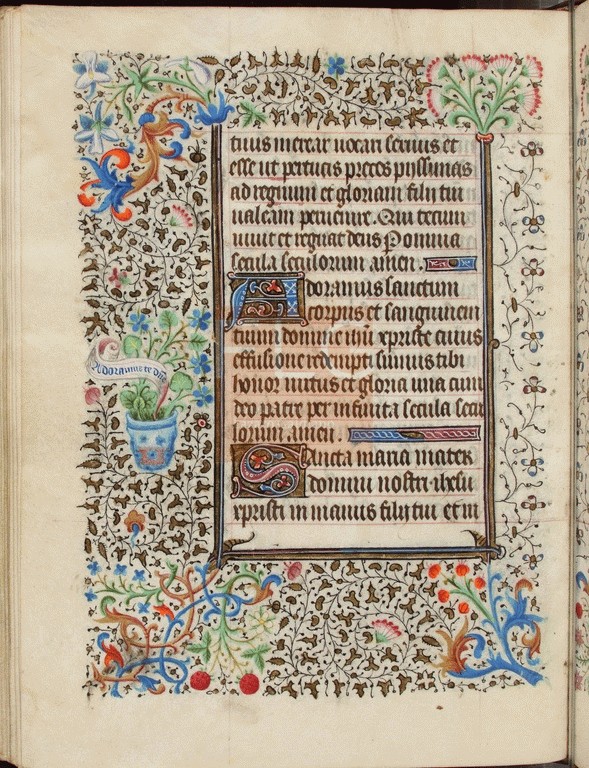 tuus merear uocari seruus et
esse ut per tuas preces pijssimas
ad regnum et gloriam filij tui
ualeam peruenire. Qui tecum
uiuit et regnat deus P omnia
secula seculorum amen.
Adoramus sanctum
corpus et sanguinem
tuum domine ihu xpriste cuius
effusione redempti sumus tibi
honor uirtus et gloria una cum
deo patre per infinita secula secu
lorum amen.
Sancta maria mater
domini nostri ihesu
xpristi in manus filij tui et in
Adoramus te dne